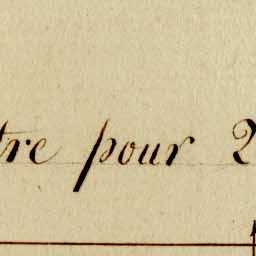 tre pour 2